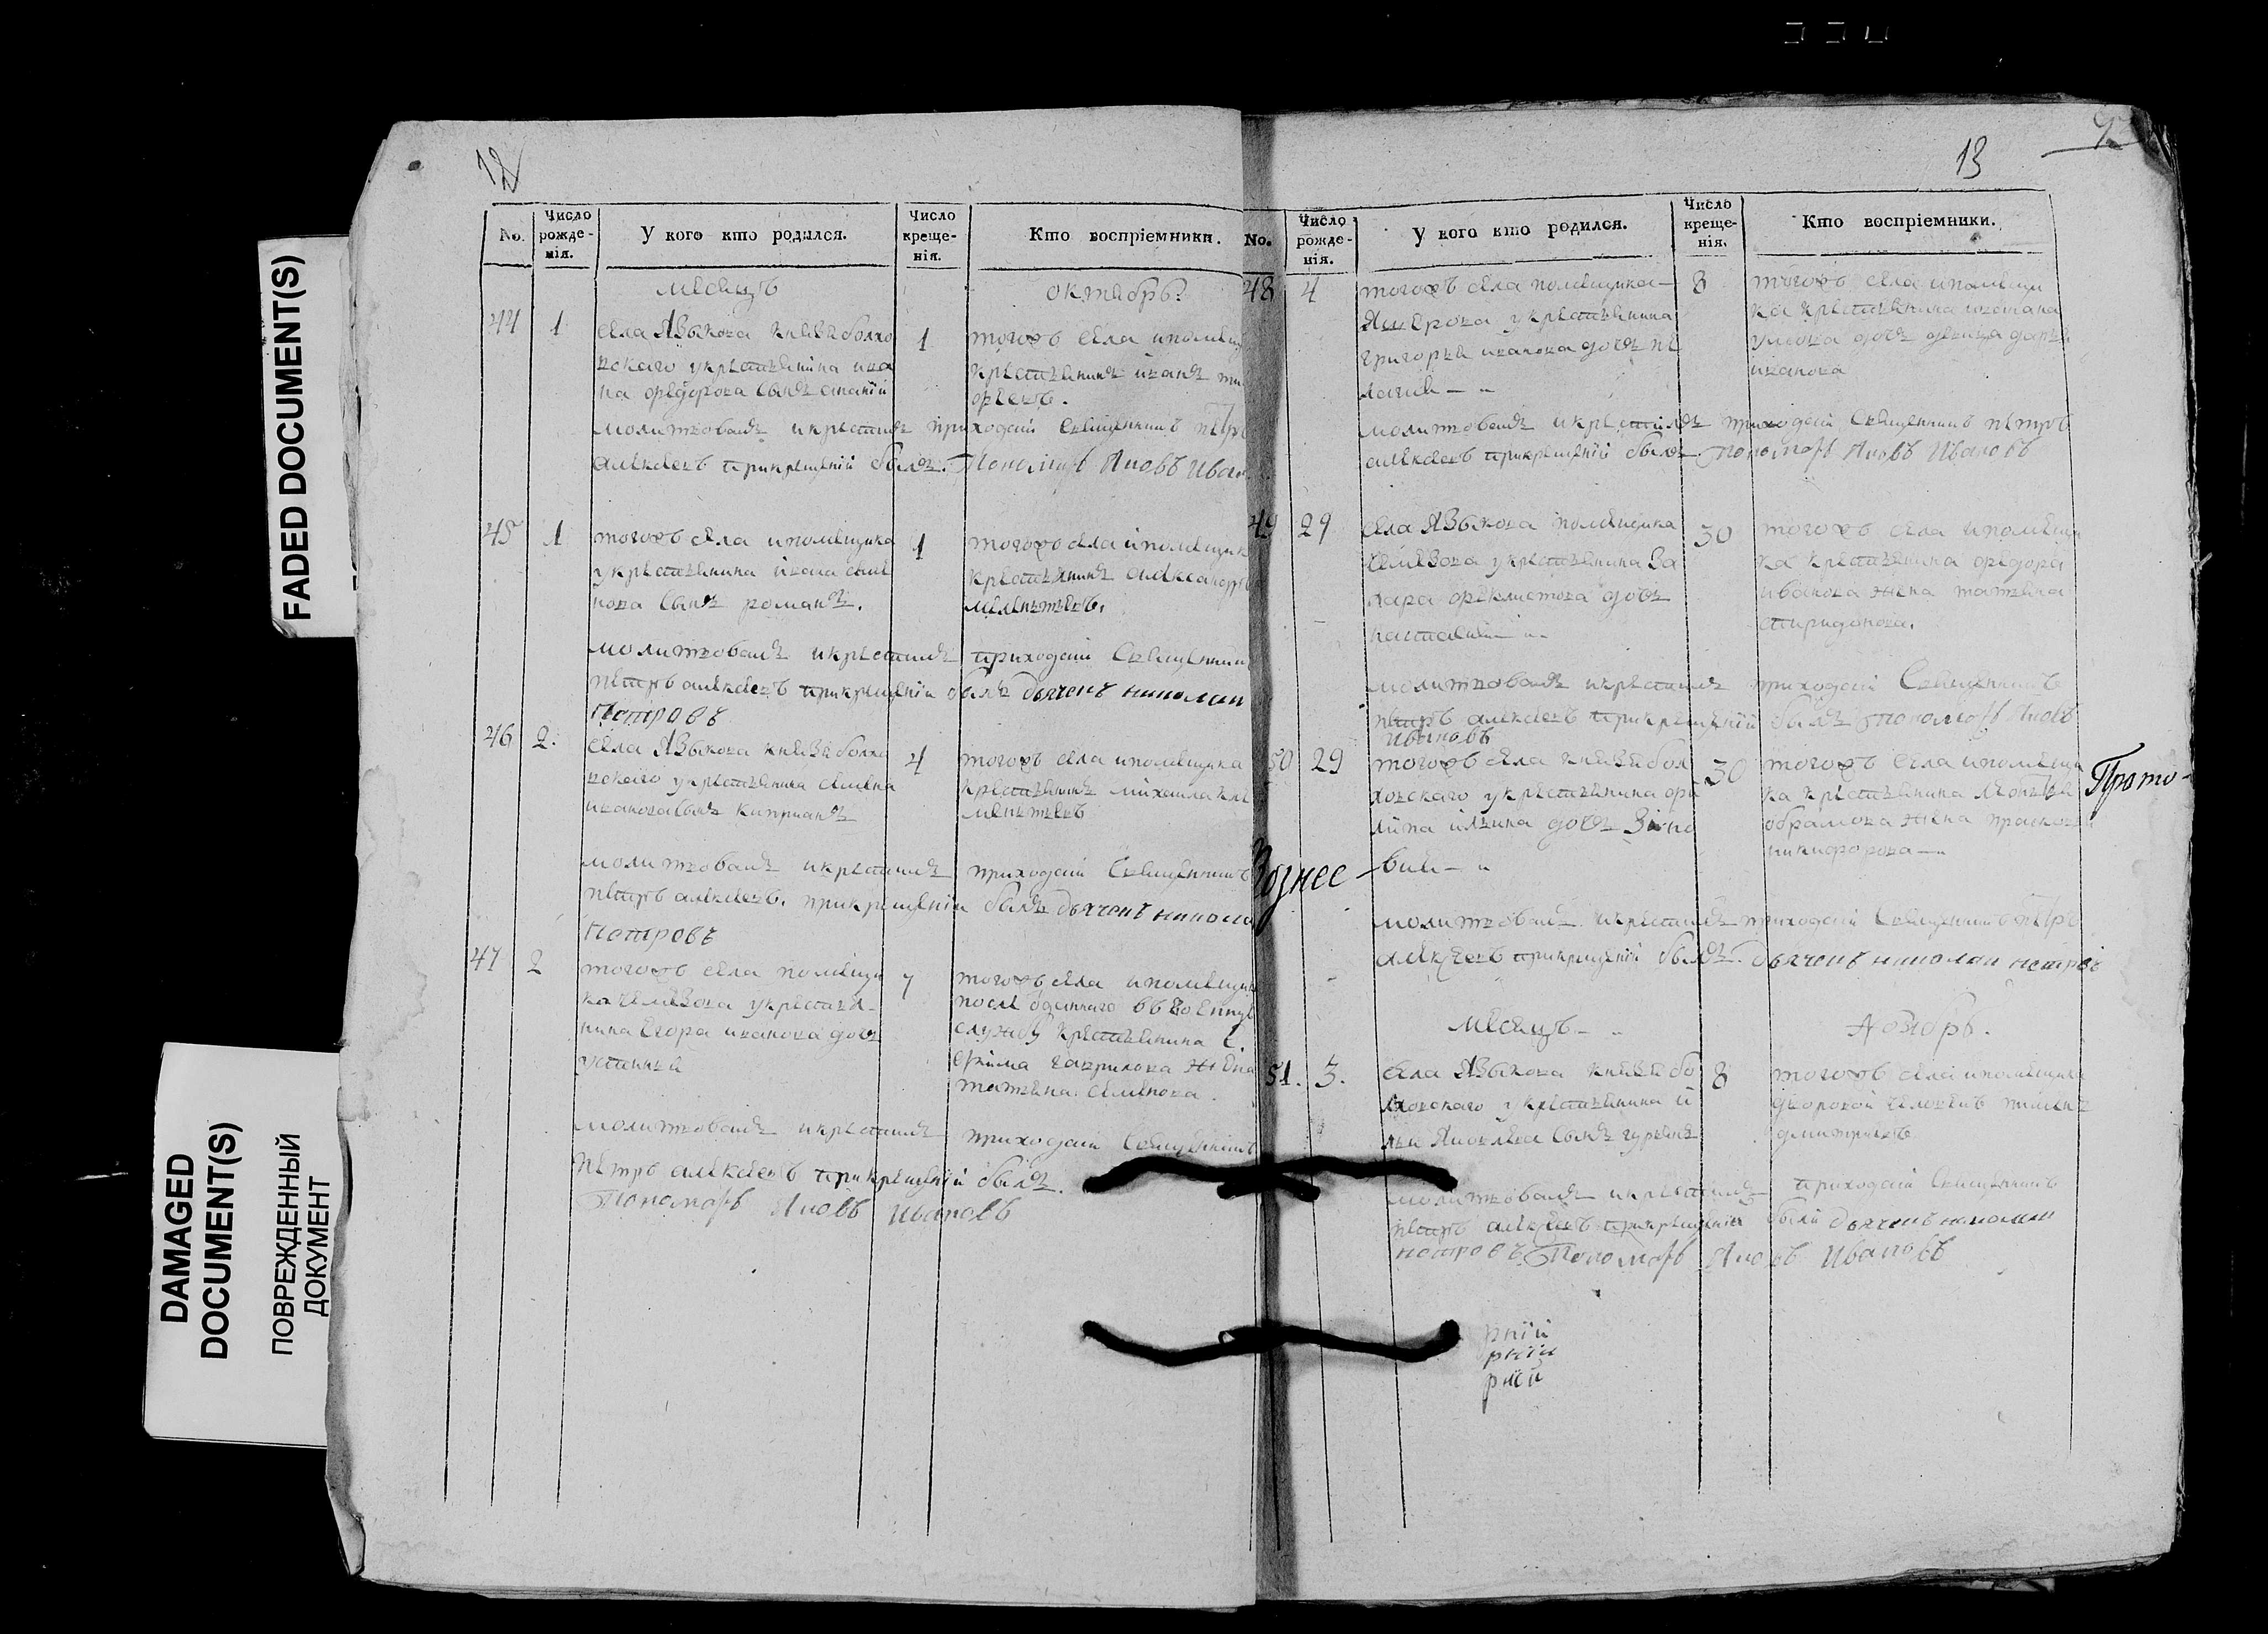 FADED DOCUMENT(S)
DAMAGED
DOCUMENT(S)
ПОВРЕЖДЕННЫЙ
ДОКУМЕНТ
12
No.
Число рожде-нія.
У кого кто родился.
Число креще-нія.
Кто воспріемники.
месяцъ октябрь
44 1
села Языкова князя Волхо
нскаго у крестьянина ива
на федорова сынъ
1
тогожъ села и помещи
крестьянинъ иванъ
молитвовалъ и крестилъ приходскій священникъ петръ
алексеевъ при крещеніи былъ Пономарь Яковъ Иван
45 1
тогожъ села и помещика
у крестьянина ивана семе
нова сынъ романъ.
1
тогожъ села и помещик
крестьянинъ александръ
молитвовалъ и крестилъ приходскій священник
петръ алексеевъ при крещеніи былъ дьячекъ николаи
Петровъ
46 2.
села Языкова князя волхо
нскаго у крестьянина семена
иванова сынъ киприанъ
4
тогожъ села и помещика
крестьянинъ михаила кле
ментьевъ
молитвовалъ и крестилъ приходскій священникъ
петръ алексеевъ. при крещеніи былъ дьячекъ никола
Петровъ
47 2
тогожъ села помещи
у крестья-
нина Егора иванова дочь
устинья
7
тогожъ села и помещик
службу крестьянина
гаврилова жена
татьяна семенова.
молитвовалъ и крестилъ приходскій священникъ
петръ алексеевъ при крещеніи былъ.
Пономарь Яковъ Ивановъ
13
No.
Число рожде-нія.
У кого кто родился.
Число креще-нія.
Кто воспріемники.
48 4
тогожъ села помещика
у крестьянина
григорья иванова дочь пе
лагия
8
тогожъ села и помещи
ка крестьянина
дочь девица дарья
иванова
молитвовалъ и крестилъ приходскій священникъ петръ
алексеевъ при крещеніи былъ. Пономарь Яковъ Ивановъ
49 29
села Языкова помещика
у крестьянина За
хара феклистова дочь
настасия
30
тогожъ села и помещи
ка крестьянина федора
иванова жена татьяна
спиридонова.
молитвовалъ и крестилъ приходскій Священникъ
петръ алексеевъ при крещеніи былъ пономарь Яковъ
Ивановъ
50 29
тогожъ села князя вол
хонскаго у крестьянина фи
липа ильина дочь Зино
вия
30
тогожъ села и помещи
ка крестьянина леонтья
абрамова жена прасковья
никифорова
Прото-
Вознес-
молитвовалъ и крестилъ приходскій священникъ петръ
алексеевъ при крещеніи былъ. дьячекъ николаи петровъ
месяцъ ноябрь.
51. 3.
села Языкова князя во
лхонскаго у крестьянина и
льи Яковлева сынъ гурьянъ
8
тогожъ села и помещика
дворовой человекъ
дмитриевъ
молитвовалъ и крестилъ приходскій священникъ
петръ алексеевъ при крещеніи были дьячекъ николаи
петровъ Пономарь Яковъ Ивановъ
рніи
рніи
рніи